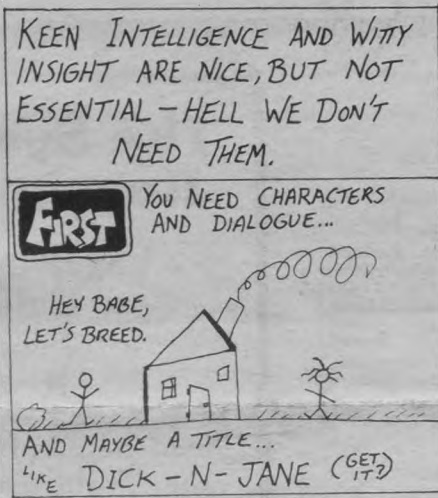 KEEN INTELLIGENCE AND WITTY
INSIGHT ARE NICE, BUT NOT
ESSENTIAL – HELL WE DON'T
NEED THEM.
FIRST
YOU NEED CHARACTERS
AND DIALOGUE...
HEY BABE,
LET'S BREED.
AND MAYBE A TITLE...
LIKE DICK-N-JANE (GET IT?)